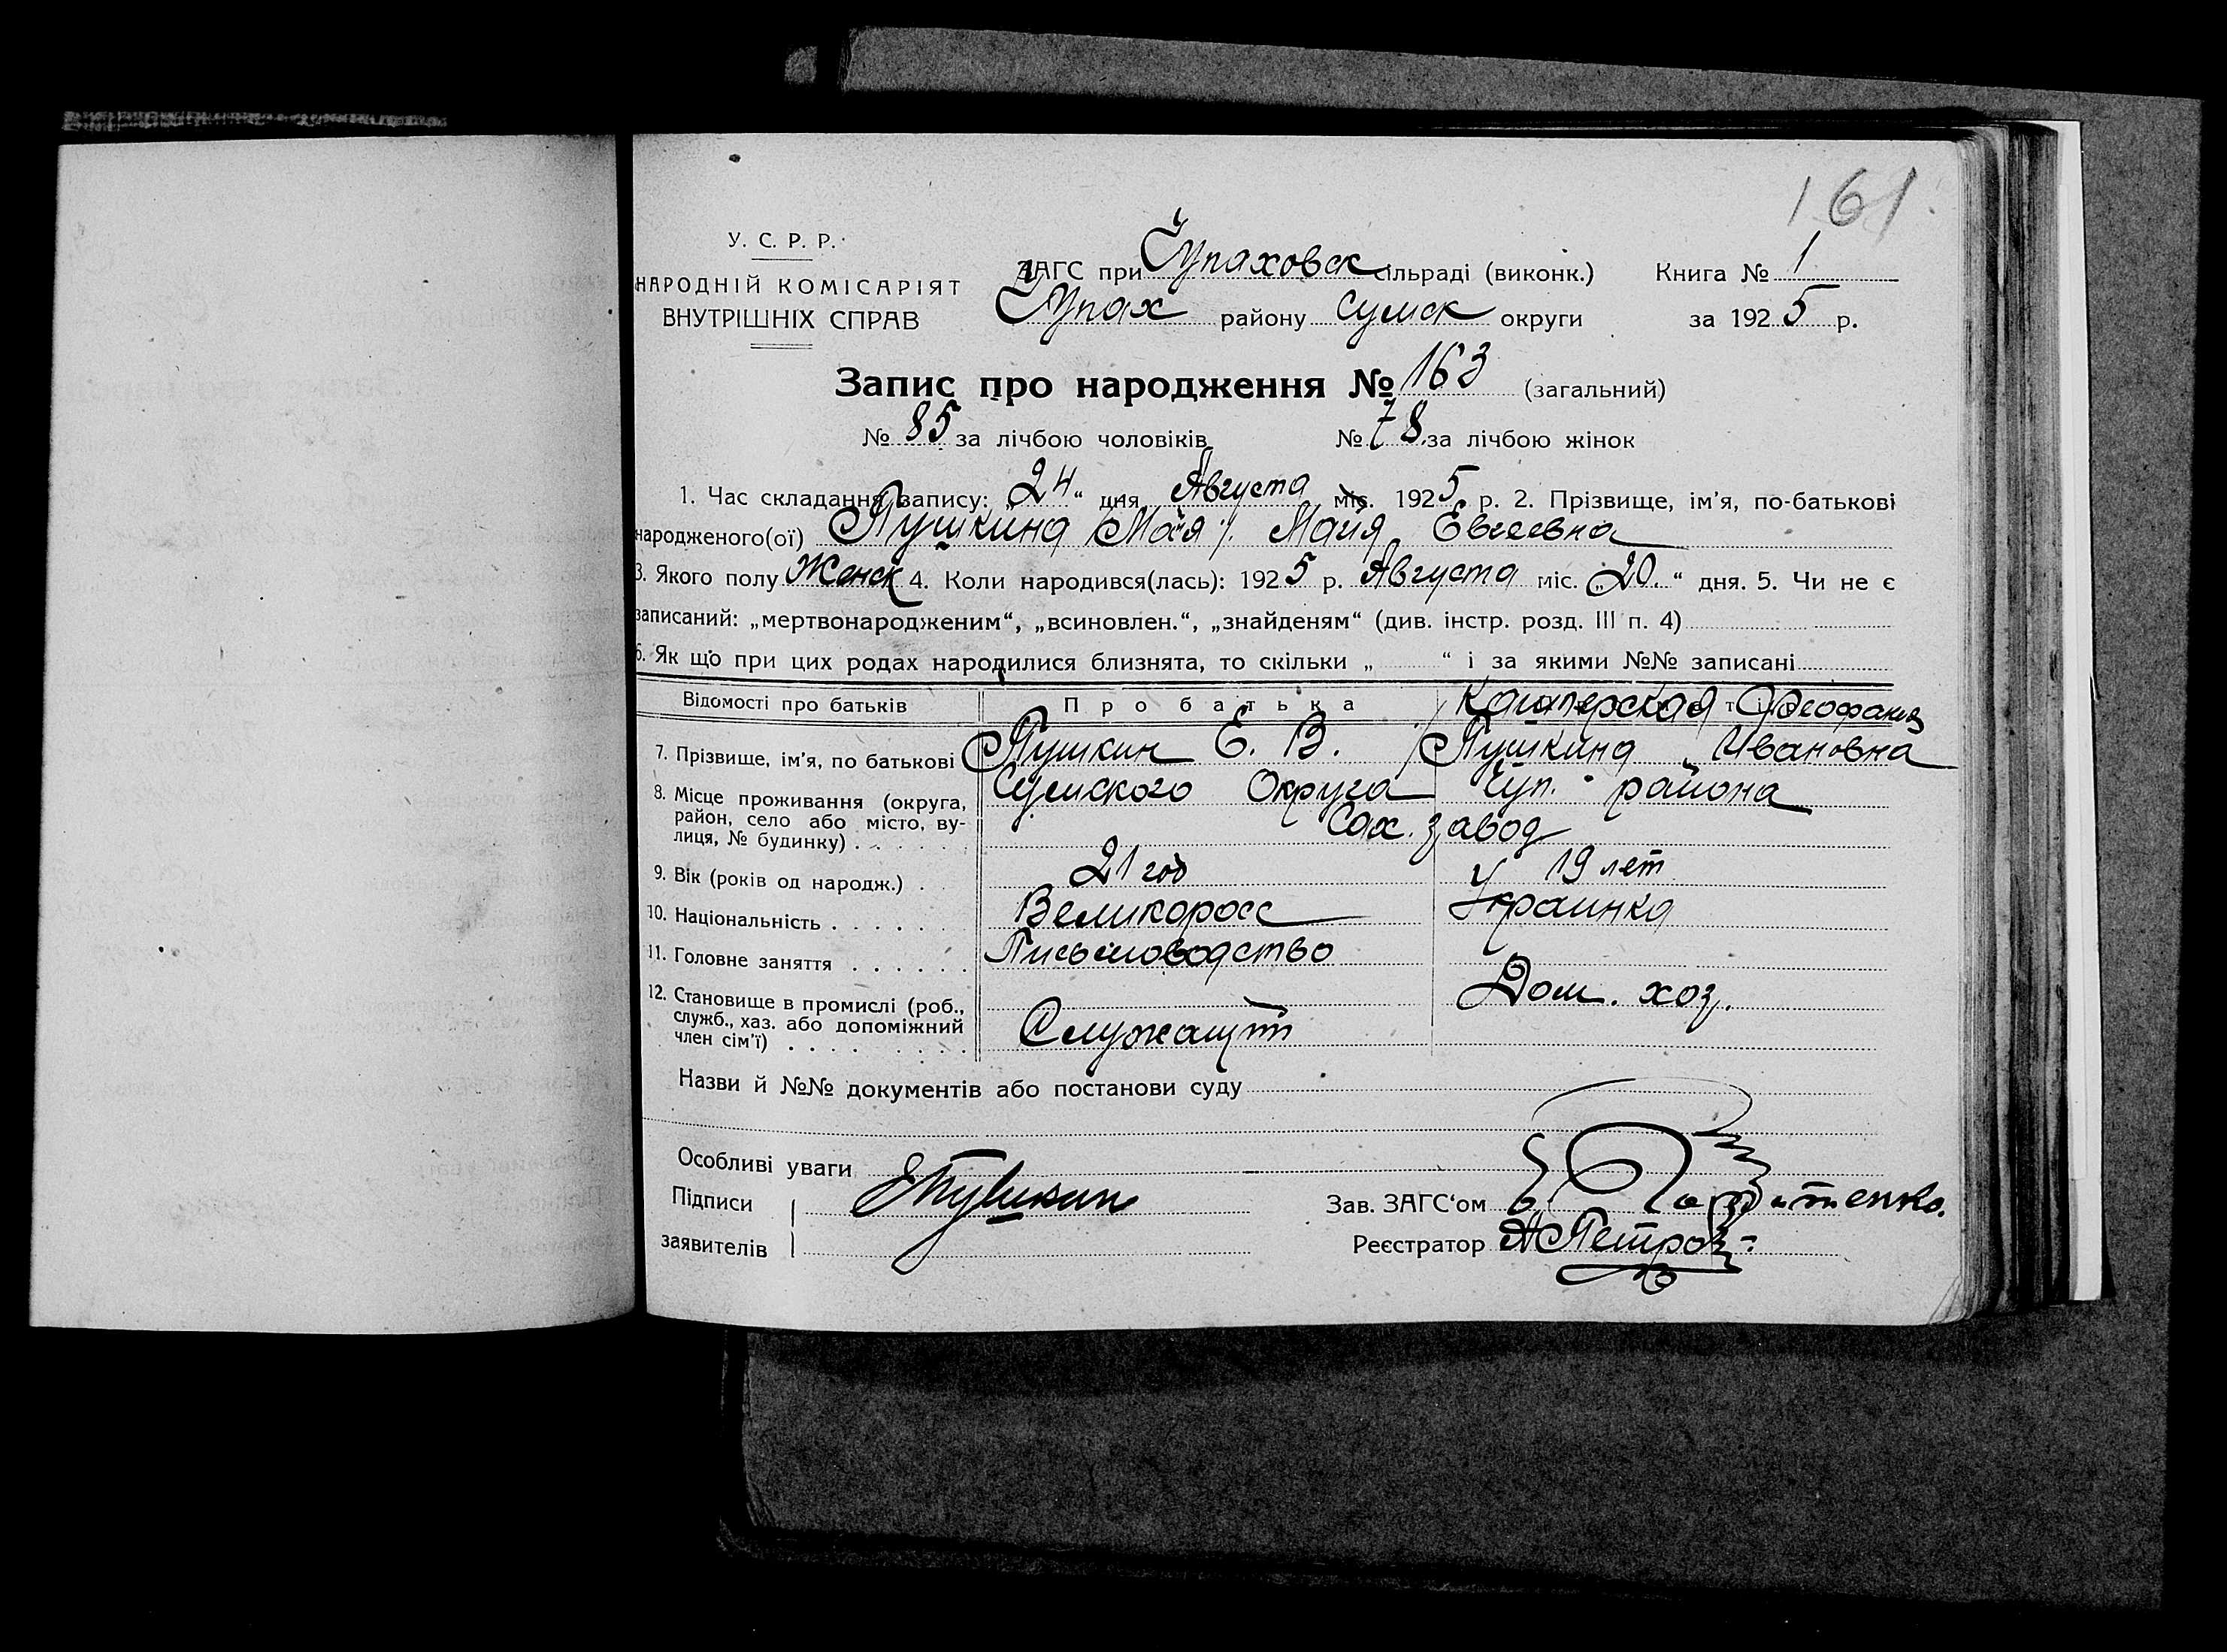 161.
У. С. Р. Р.
НАРОДНІЙ КОМІСАРІЯТ
ВНУТРІШНІХ СПРАВ
ЗАГС при Чупаховск сільраді (виконк.) Книга № 1
Чупах району Сумск округи за 1925 р.
Запис про народження № 163 (загальний)
№ 85 за лічбою чоловіків № 78 за лічбою жінок
1. Час складання запису: „24“ дня Августа міс. 1925 р. 2. Прізвище, ім’я, по-батькові
народженого(ої) Пушкина /Мая/. Майя Евгеевна
3. Якого полу Женск 4. Коли народився(лась): 1925 р. Августа міс. „20.“ дня. 5. Чи не є
записаний: „мертвонародженим“, „всиновлен.“, „знайденям“ (див. інстр. розд. III п. 4)
6. Як що при цих родах народилися близнята, то скільки „ “ і за якими №№ записані
Відомості про батьків Про батька Феофания
7. Прізвище, ім’я, по батькові Пушкин Е. В. Пушкина Ивановна
8. Місце проживання (округа, Сумского Округа Чуп. района
район, село або місто, ву-
лиця, № будинку) . . . . . . Сах. завод
9. Вік (років од народж.) . 21 год 19 лет
10. Національність . . . . . . Великоросс Украинка
11. Головне заняття . . . . . . Письмоводство
12. Становище в промислі (роб., Дом. хоз.
служб., хаз. або допоміжний Служащий
член сім’ї) . . . . . . . . .
Назви й №№ документів або постанови суду
Особливі уваги
Підписи ЕПушкин Зав. ЗАГС‘ом
заявителів Реєстратор АПетров